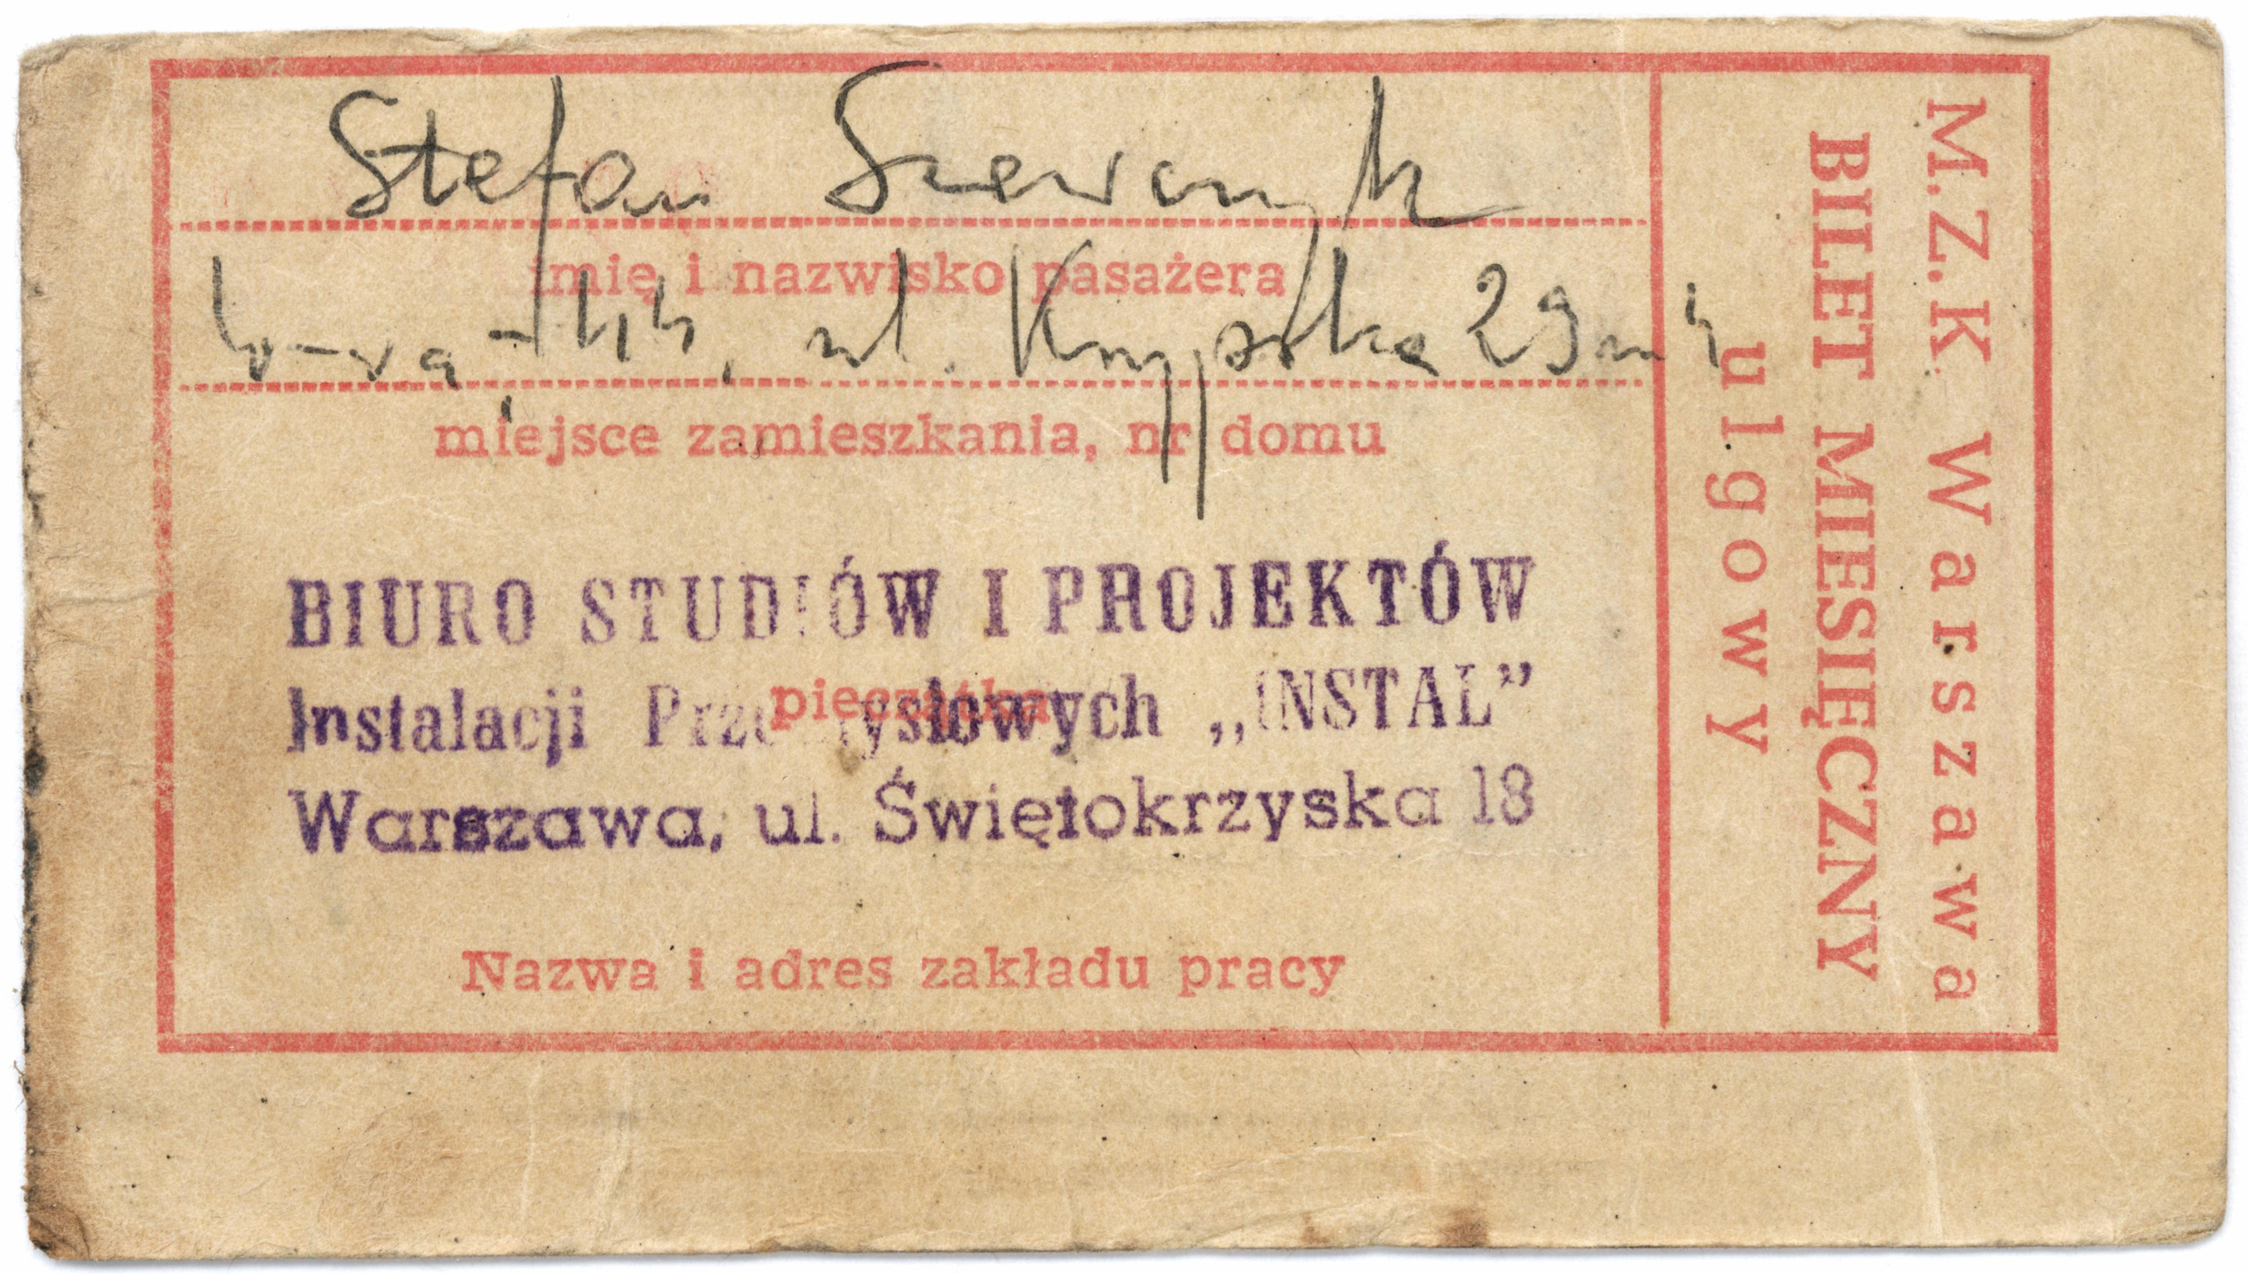 Stefan Szewczyk
imię i nazwisko pasażera
W-wa -44, ul. 29 m 4
miejsce zamieszkania, nr domu
BIURO STUDIÓW I PROJEKTÓW
Instalacji Przemysłowych „INSTAL”
pieczątka
Warszawa, ul. Świętokrzyska 18
Nazwa i adres zakładu pracy
M.Z.K Warszawa
BILET MIESIĘCZNY
ulgowy